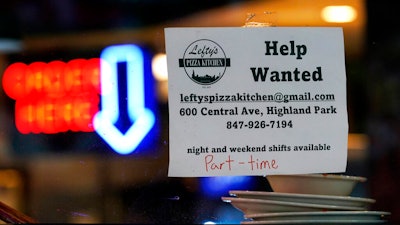 Lefty's
PIZZA KITCHEN
Help
Wanted
leftyspizzakitchen@gmail.com
600 Central Ave, Highland Park
847-926-7194
night and weekend shifts available
Part-time
ORDER
HERE